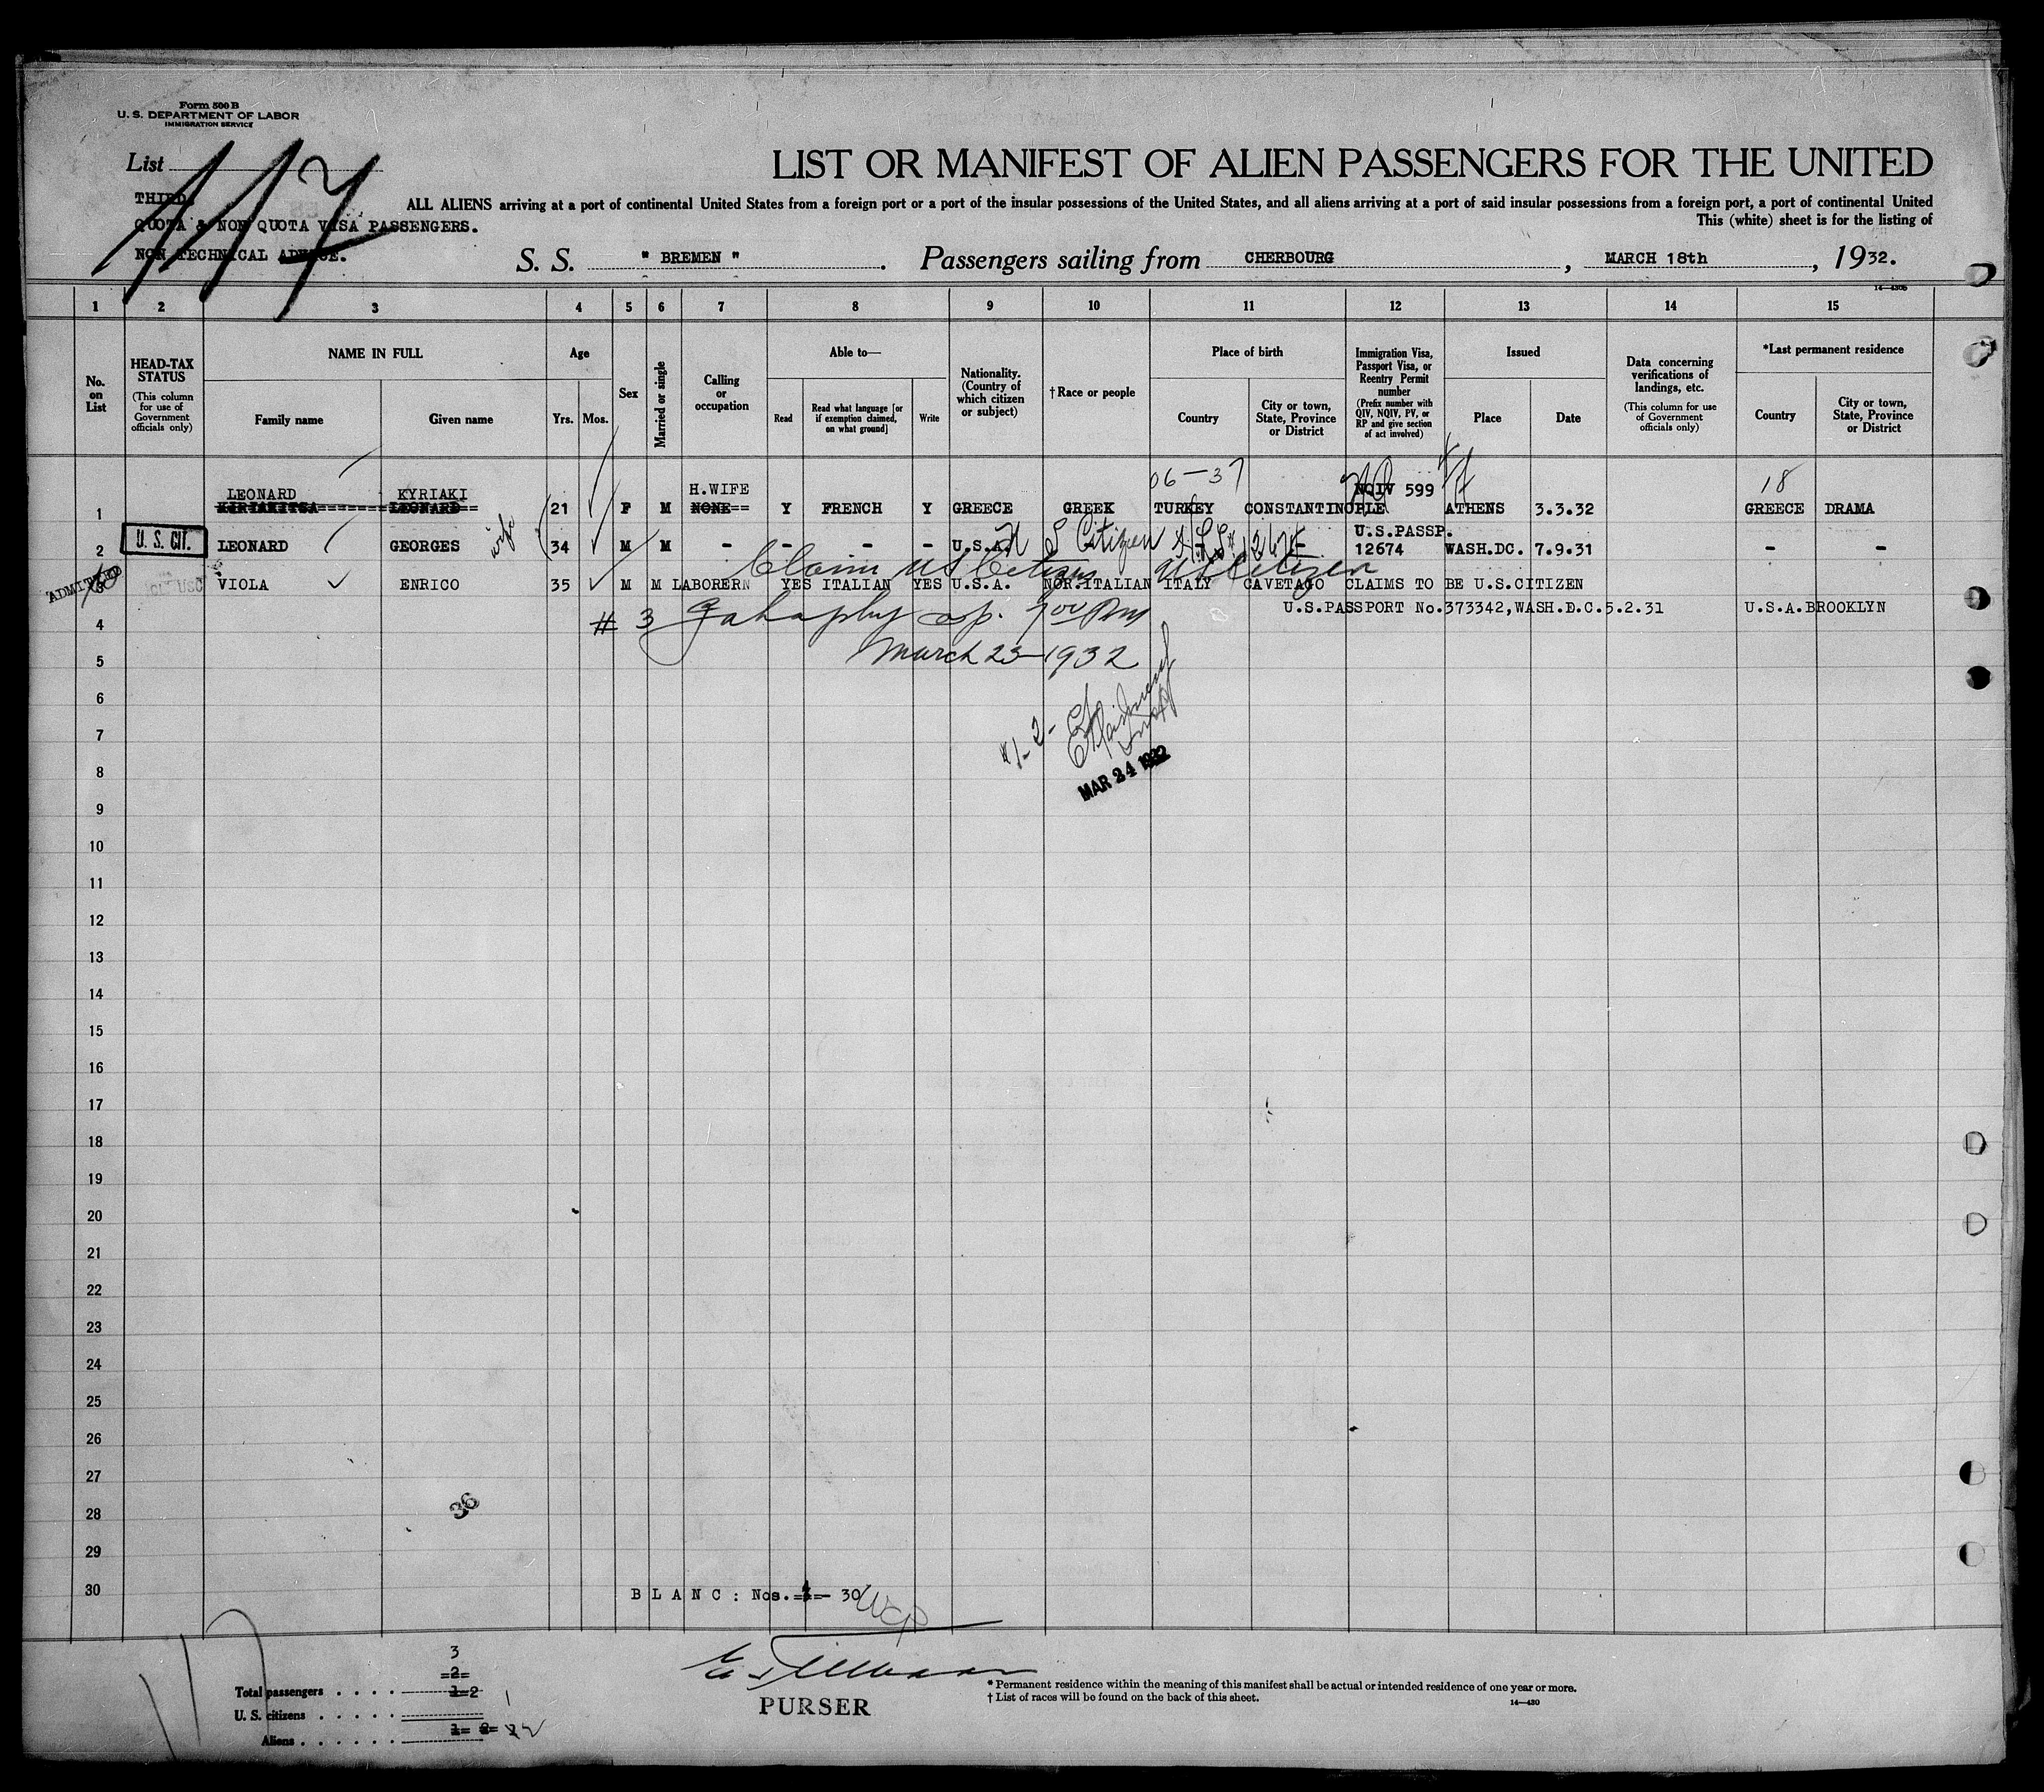 Form 500 B
U. S. DEPARTMENT OF LABOR
IMMIGRATION SERVICE
List
117
LIST OR MANIFEST OF ALIEN PASSENGERS FOR THE UNITED
THIRD.
ALL ALIENS arriving at a port of continental United States from a foreign port or a port of the insular possessions of the United States, and all aliens arriving at a port of said insular possessions from a foreign port, a port of continental United
QUOTA & NON QUOTA VISA PASSENGERS.
This (white) sheet is for the listing of
NON TECHNICAL ADVICE.
S. S. " BREMEN ". Passengers sailing from CHERBOURG, MARCH 18th, 1932.
1 2 3 4 5 6 7 8 9 10 11 12 13 14 15
No. on List
HEAD-TAX STATUS (This column for use of Government officials only)
NAME IN FULL
Family name
Given name
Age
Yrs. Mos.
Sex
Married or single
Calling or occupation
Able to—
Read
Read what language [or if exemption claimed, on what ground]
Write
Nationality. (Country of which citizen or subject)
† Race or people
Place of birth
Country
City or town, State, Province or District
Immigration Visa, Passport Visa, or Reentry Permit number (Prefix number with QIV, NQIV, PV, or RP and give section of act involved)
Issued
Place
Date
Data concerning verifications of landings, etc. (This column for use of Government officials only)
*Last permanent residence
Country
City or town, State, Province or District
06-37
18
LEONARD KYRIAKI H.WIFE NQIV 599
1 KIRIAKITSA LEONARD 21 F M NONE Y FRENCH Y GREECE GREEK TURKEY CONSTANTINOPLE ATHENS 3.3.32 GREECE DRAMA
wife
U.S.PASSP.
2 U. S. CIT. LEONARD GEORGES 34 M M - - - - U.S.A. - - - 12674 WASH.DC. 7.9.31 - -
U S Citizen
Claim US Citizen US Citizen
ADMITTED
3 VIOLA ENRICO 35 M M LABORER YES ITALIAN YES U.S.A. NOR.ITALIAN ITALY CAVETAGO CLAIMS TO BE U.S.CITIZEN
U.S.PASSPORT No.373342,WASH.D.C.5.2.31 U.S.A.BROOKLYN
# 3
4
March 23-1932
5
6
#1-2-
7
MAR 24 1932
8
9
10
11
12
13
14
15
16
17
18
19
20
21
22
23
24
25
26
27
36
28
29
30
B L A N C : Nos. 4 - 30
3
2
Total passengers . . . . 1 2
U. S. citizens . . . . . 1
Aliens . . . . . . 1 2 2
PURSER
* Permanent residence within the meaning of this manifest shall be actual or intended residence of one year or more.
† List of races will be found on the back of this sheet.
14—430